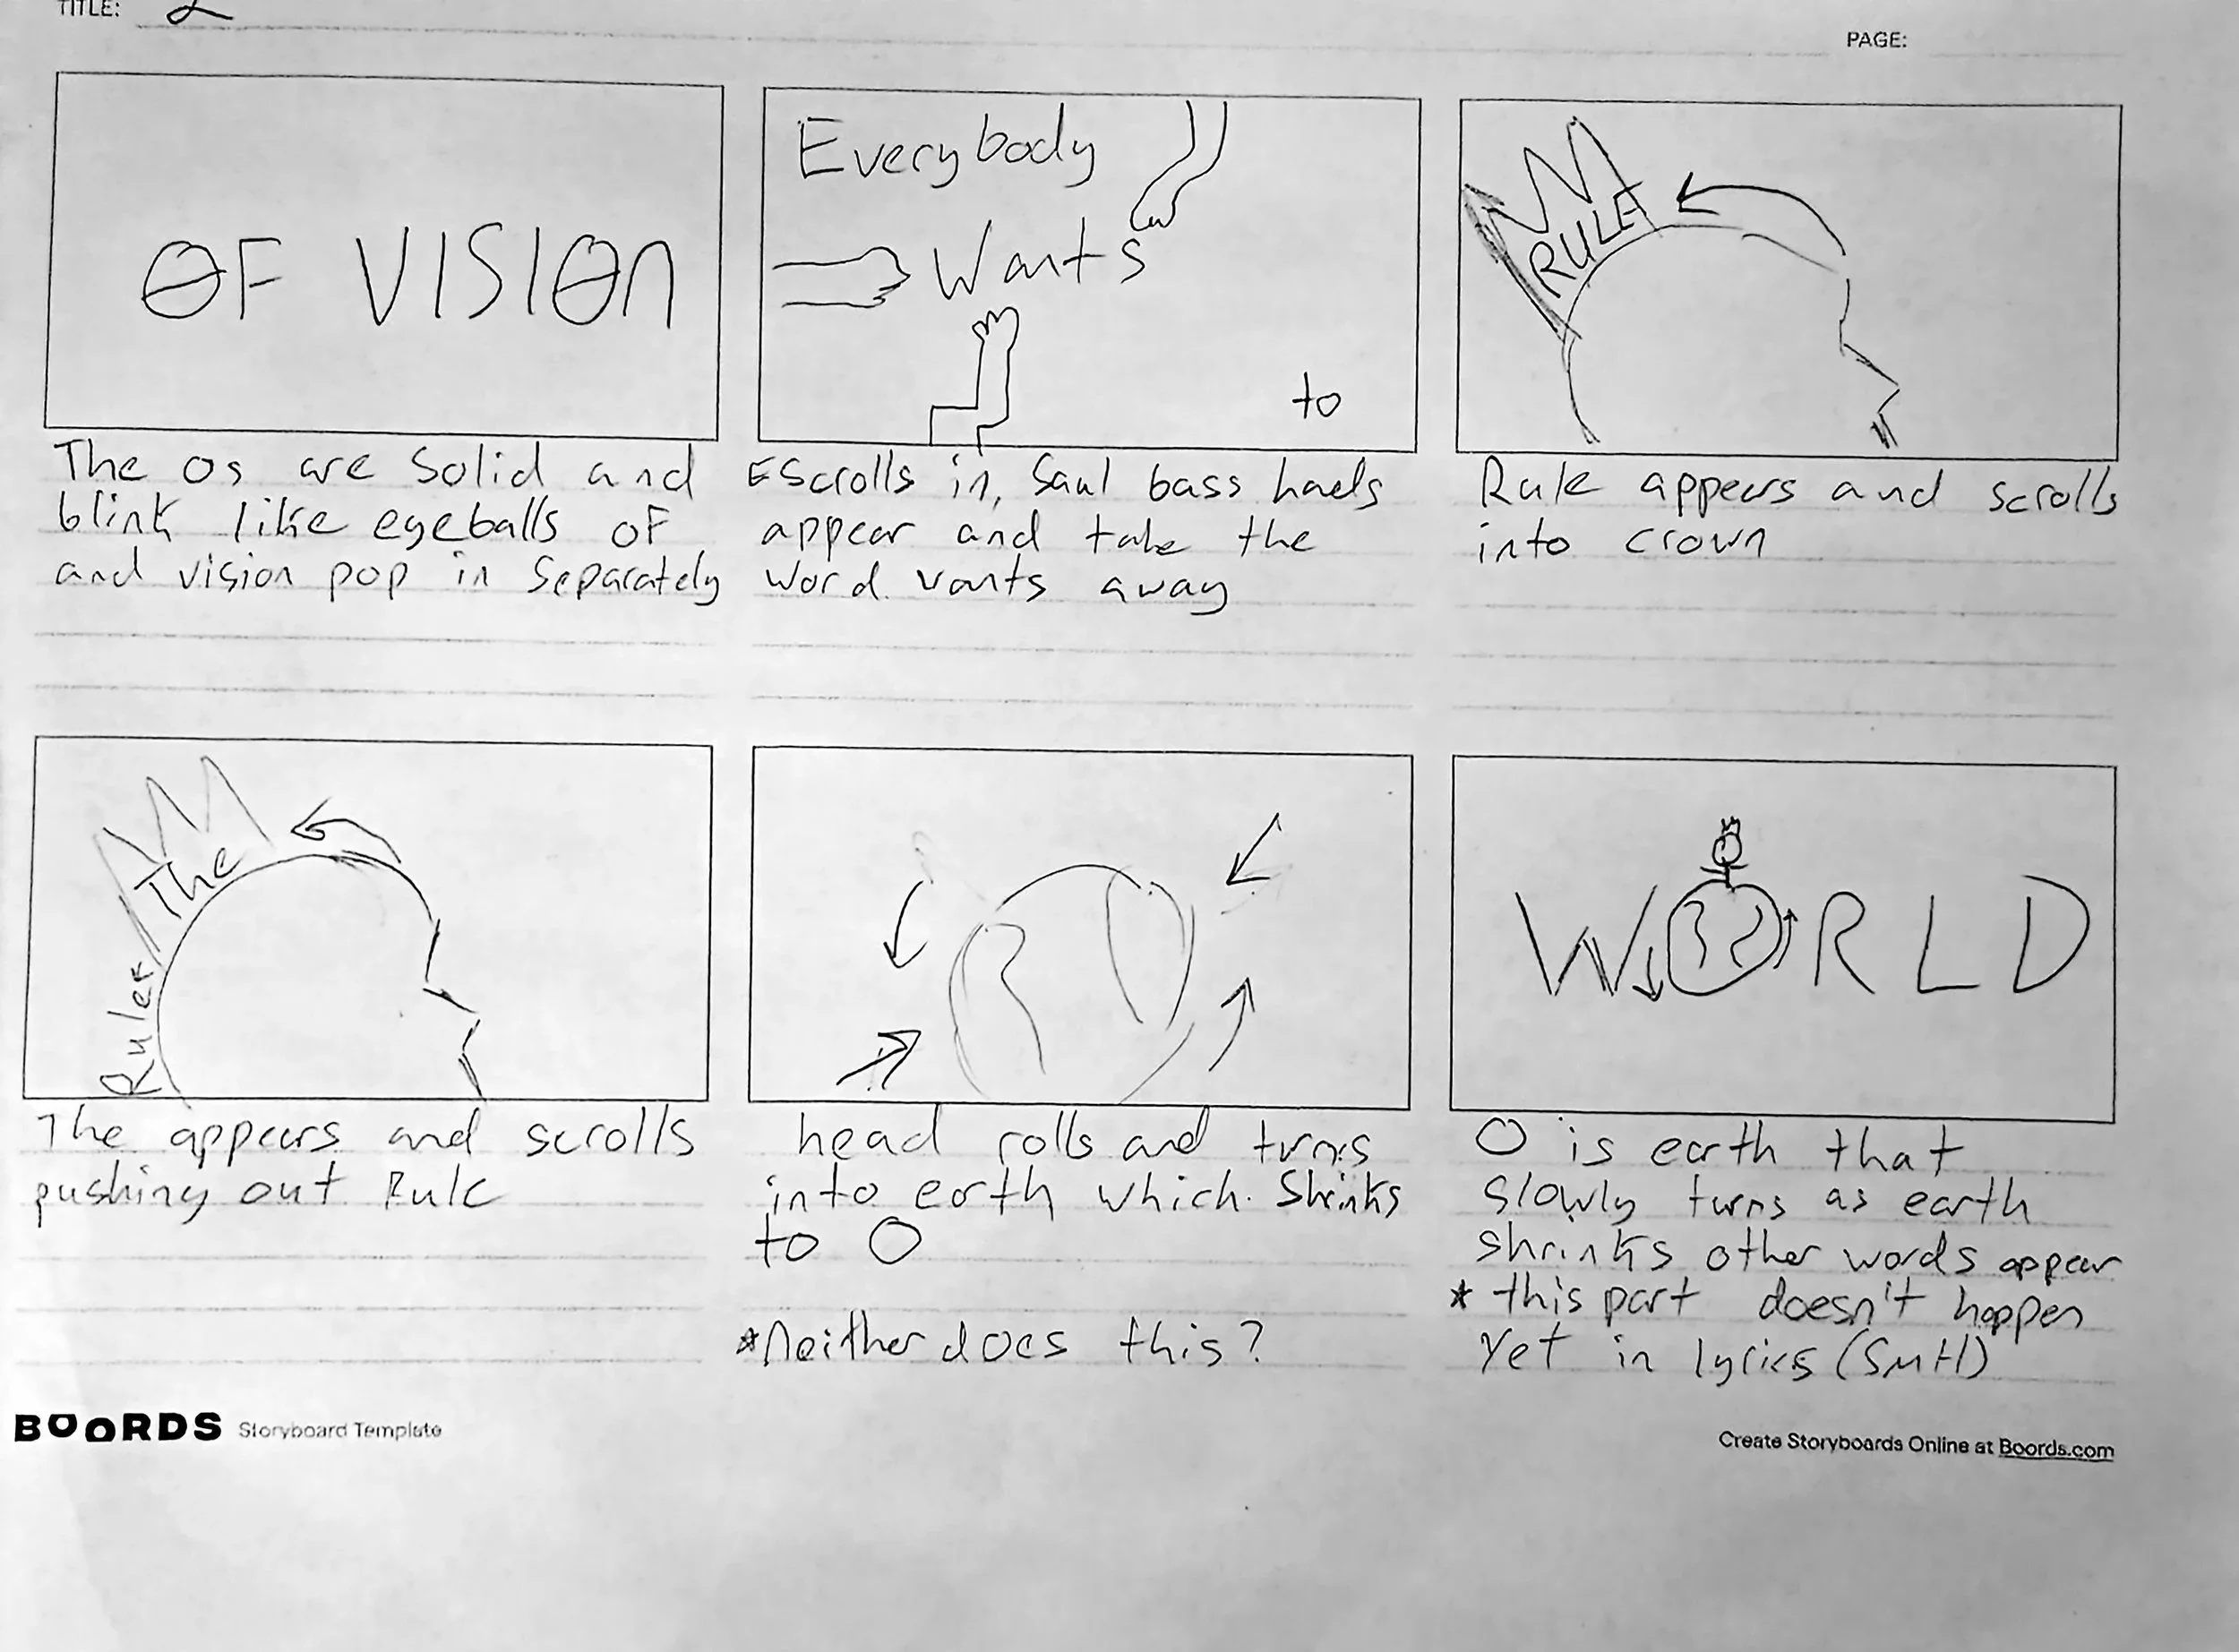 TITLE: 2
PAGE:
OF VISION
The os are Solid and
blink like eyeballs OF
and vision pop in Separately
Everybody
Wants
to
EScrolls in, Saul bass haels
appear and take the
word wants away
RULE
Rule appears and scrolls
into crown
The
Rule
The appears and scrolls
pushing out Rule
head rolls and turns
into earth which Shrinks
to O
*Neither does this?
WORLD
O is earth that
slowly turns as earth
shrinks other words appear
* this part doesn't happen
Yet in lyrics (SMH)
BOORDS Storyboard Template
Create Storyboards Online at Boords.com